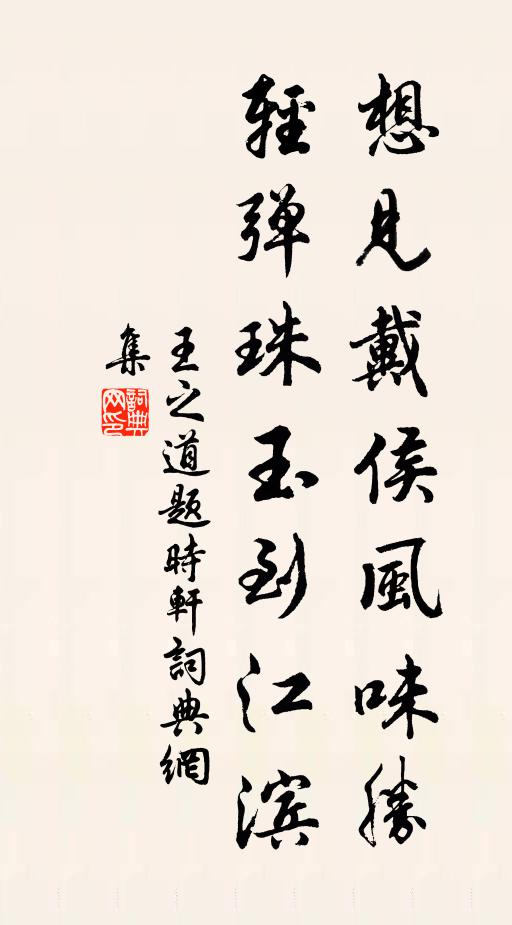 想見戴侯風味勝
輕弹珠玉到江滨
王之道题時軒詞典網
集
詞典
网印